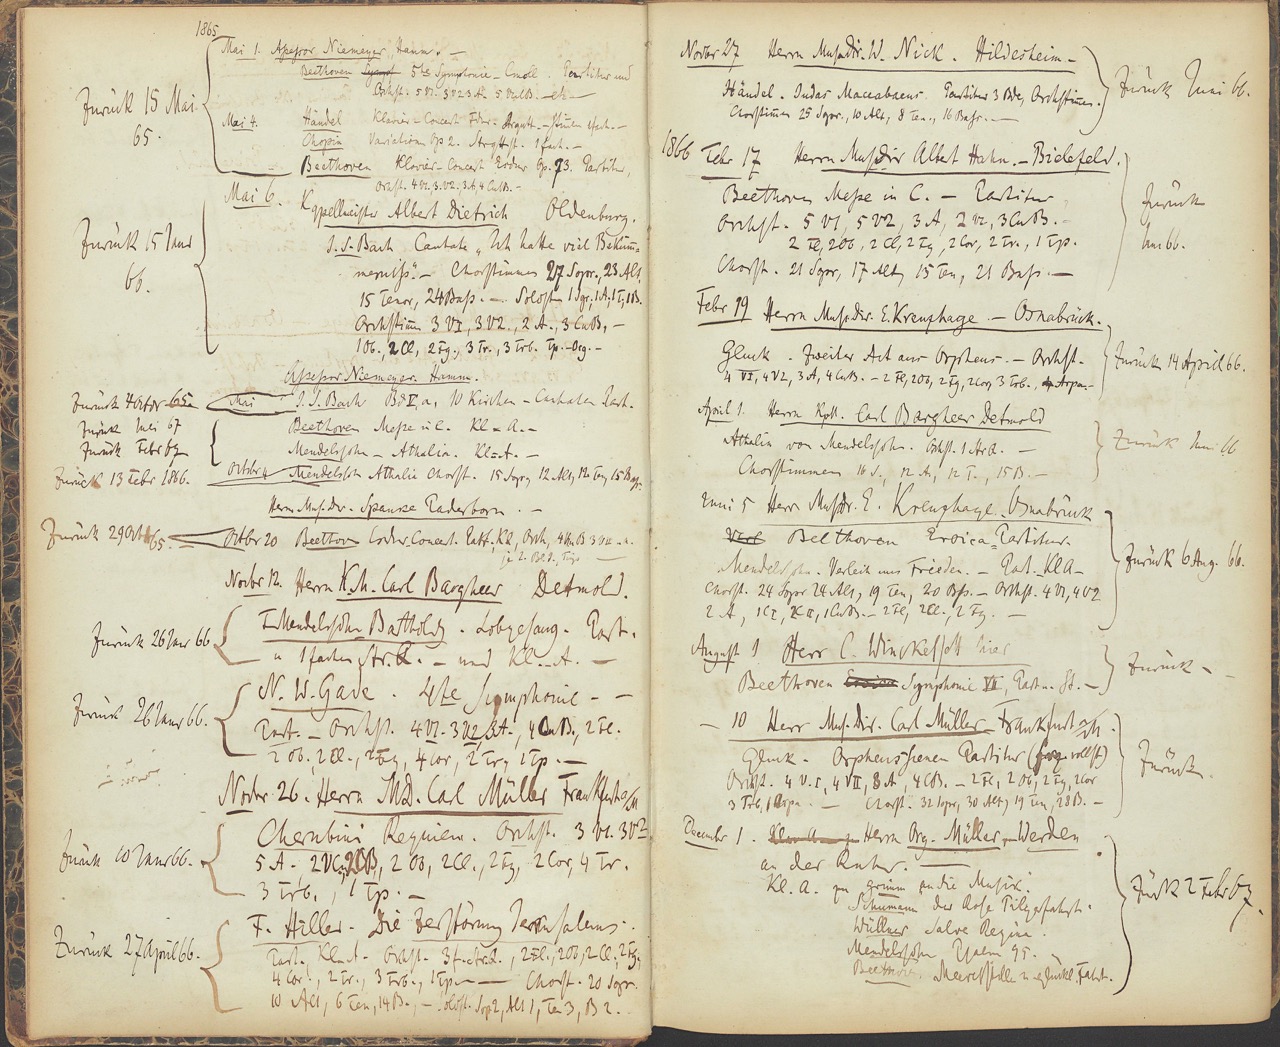 1865
Mai 1. Assessor Niemeyer, Hamm. –
Beethoven Sympf 5te Symphonie – Cmoll. Partitur und
Orchst. 5 V1. 3 V2 3 A. 5 CuB. –
Zurück 15 Mai
65.
Mai 4. Händel Klavier-Concert Fdur.
Chopin Variationen Op 2. 1 fach. –
Beethoven Klavier-Concert Esdur Op. 73. Partitur,
Orchst. 4 V1. 3. V2. 3 A 4 CuB. –
Mai 6. Kapellmeister Albert Dietrich Oldenburg.
Zurück 15 Januar
66.
J. S. Bach Cantate „Ich hatte viel Beküm-
merniß". – Chorstimmen 27 Sopr., 23 Alt,
15 Tenor, 24 Bass. – Solost. 1 Sopr. 1 A. 1 T, 1 B.
Orchstimm 3 V1, 3 V2., 2 A., 3 CuB, –
1 Ob., 2 Cl, 2 Fg., 3 Tr., 3 Trb. Tp. – Org. –
Assessor Niemeyer. Hamm.
Zurück 4 Octbr 65 Mai J. S. Bach Bd II, a, 10 Kirchen-Cantaten Part.
Zurück Mai 67 Beethoven Messe in C. Kl=A. –
Zurück Febr 67 Mendelssohn – Athalia. Kl=A. –
Zurück 13 Febr 1866. Octbr 4 – Mendelssohn Athalia Chorst. 15 Sopr, 12 Alt, 12 Ten, 15 Bass.
Herrn Mus. Dir. Spancke Paderborn. –
Zurück 29 Oct 65. Octbr 20 Beethoven Cdur Concert. Part, Kl, Orch, 4
Novbr 12. Herrn K. M. Carl Bargheer Detmold.
Zurück 26 Januar 66 F. Mendelssohn Bartholdy. Lobgesang. Part.
u 1 fachen Str. – und Kl. A. –
Zurück 26 Januar 66. N. W. Gade. 4te Symphonie – –
Part. – Orchst. 4 V1. 3 V2, 3 A., 4 CuB., 2 Fl.
2 Ob., 2 Cl., 2 Fg, 4 Cor, 2 Tr, 1 Tp. –
Novbr 26. Herrn MD. Carl Müller Frankfurt a/M
Zurück 10 Januar 66. Cherubini Requiem. Orchst. 3 V1. 3 V2
5 A., 2 VC, 2 CB, 2 Ob, 2 Cl., 2 Fg, 2 Cor, 4 Tr.
3 Trb., 1 Tp. –
Zurück 27 April 66. F. Hiller. Die Zerstörung Jerusalems.
Part. Kl=A. Orchst. 3 fach 2 Fl., 2 Ob, 2 Cl, 2 Fg,
4 Cor., 2 Tr., 3 Trb., 1 Tp. – – Chorst. 20 Sopr.
10 Alt, 6 Ten, 14 B., – Solost. Sop 2, Alt 1, Ten 3, B 2.
Novbr 27 Herrn Mus. Dir. W. Nick. Hildesheim –
Händel. Judas Maccabaeus. Partitur 3 Bde, Orchstimm.
Chorstimm 25 Sopr., 10 Alt, 8 Ten., 16 Bass. –
Zurück Juni 66.
1866 Febr 17 Herrn Mus Dir Albert Hahn. – Bielefeld.
Beethoven Messe in C. – Partitur
Orchst. 5 V1, 5 V2, 3 A, 2 Vc, 3 CuB. –
2 Fl, 2 Ob, 2 Cl, 2 Fg, 2 Cor, 2 Tr., 1 Tp.
Chorst. 21 Sopr, 17 Alt, 15 Ten, 21 Bass. –
Zurück
Juni 66.
Febr 19 Herrn Mus. Dir. E. Kreuzhage – Osnabrück.
Gluck. Zweiter Act aus Orpheus. – Orchst.
4 V1, 4 V2, 3 A, 4 CuB. – 2 Fl, 2 Ob, 2 Fg, 2 Cor, 3 Trb., Arpa. –
Zurück 14 April 66.
April 1. Herrn Kplm. Carl Bargheer Detmold
Athalia von Mendelssohn. Orchst. 1 Hrfa. –
Chorstimmen 16 S., 12 A, 12 T., 15 B. –
Zurück Juni 66
Juni 5 Herrn Musdir. E. Kreuzhage. Osnabrück
Beethoven Eroica=Partitur.
Mendelssohn. Verleih uns Frieden. – Part. Kl A –
Chorst. 24 Sopr 24 Alt, 19 Ten, 20 Bss. – Orchst. 4 V1, 4 V2
2 A, 1 C I, 1 C II, 1 CuB. – 2 Fl, 2 Cl., 2 Fg. –
Zurück 6 Aug. 66.
August 1 Herr C. Winckelsett hier
Beethoven Eroica Symphonie VII, Part u. St. –
Zurück –
– 10 Herr Mus. Dir. Carl Müller – Frankfurt a/M
Gluck. Orpheusscenen Partitur
Orchst. 4 V. I, 4 V II, 3 A, 4 CB. – 2 Fl, 2 Ob, 2 Fg, 2 Cor
3 Trb, 1 Arpa. – Chorst. 32 Sopr, 30 Alt, 19 Ten, 28 B. –
Zurück.
December 1. Herrn Org. Müller – Werden
an der Ruhr.
Kl. A. zu
Schumann der Rose Pilgerfahrt.
Wüllner Salve Regina.
Mendelssohn Psalm 95.
Beethoven. Meeresstille u glückl. Fahrt.
Zurück 2 Febr 67.